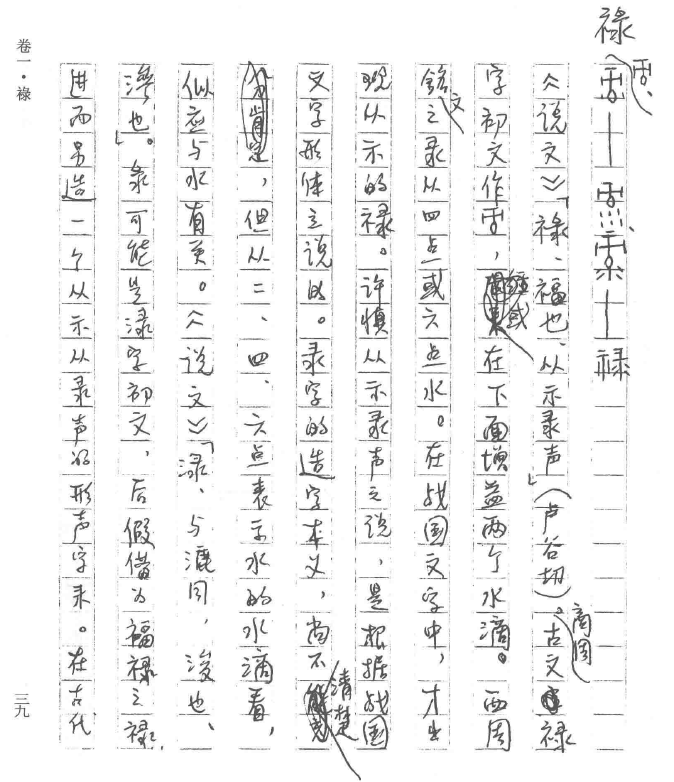 禄
《说文》「禄、福也、从示录声」(卢谷切)。商周古文禄
字初文作，继或在下面增益两个水滴。西周
铭文之录从四点或六点水。在战国文字中，才出
现从示的禄。许慎从示录声之说，是根据战国
文字形体立说的。录字的造字本义，尚不清楚
，但从二、四、六点表示水的水滴看，
似应与水有关。《说文》「渌、与漉同，浚也、
渗也」。录可能是渌字初文，后假借为福禄之禄，
进而另造一个从示从录声的形声字来。在古代
卷一·禄
三九